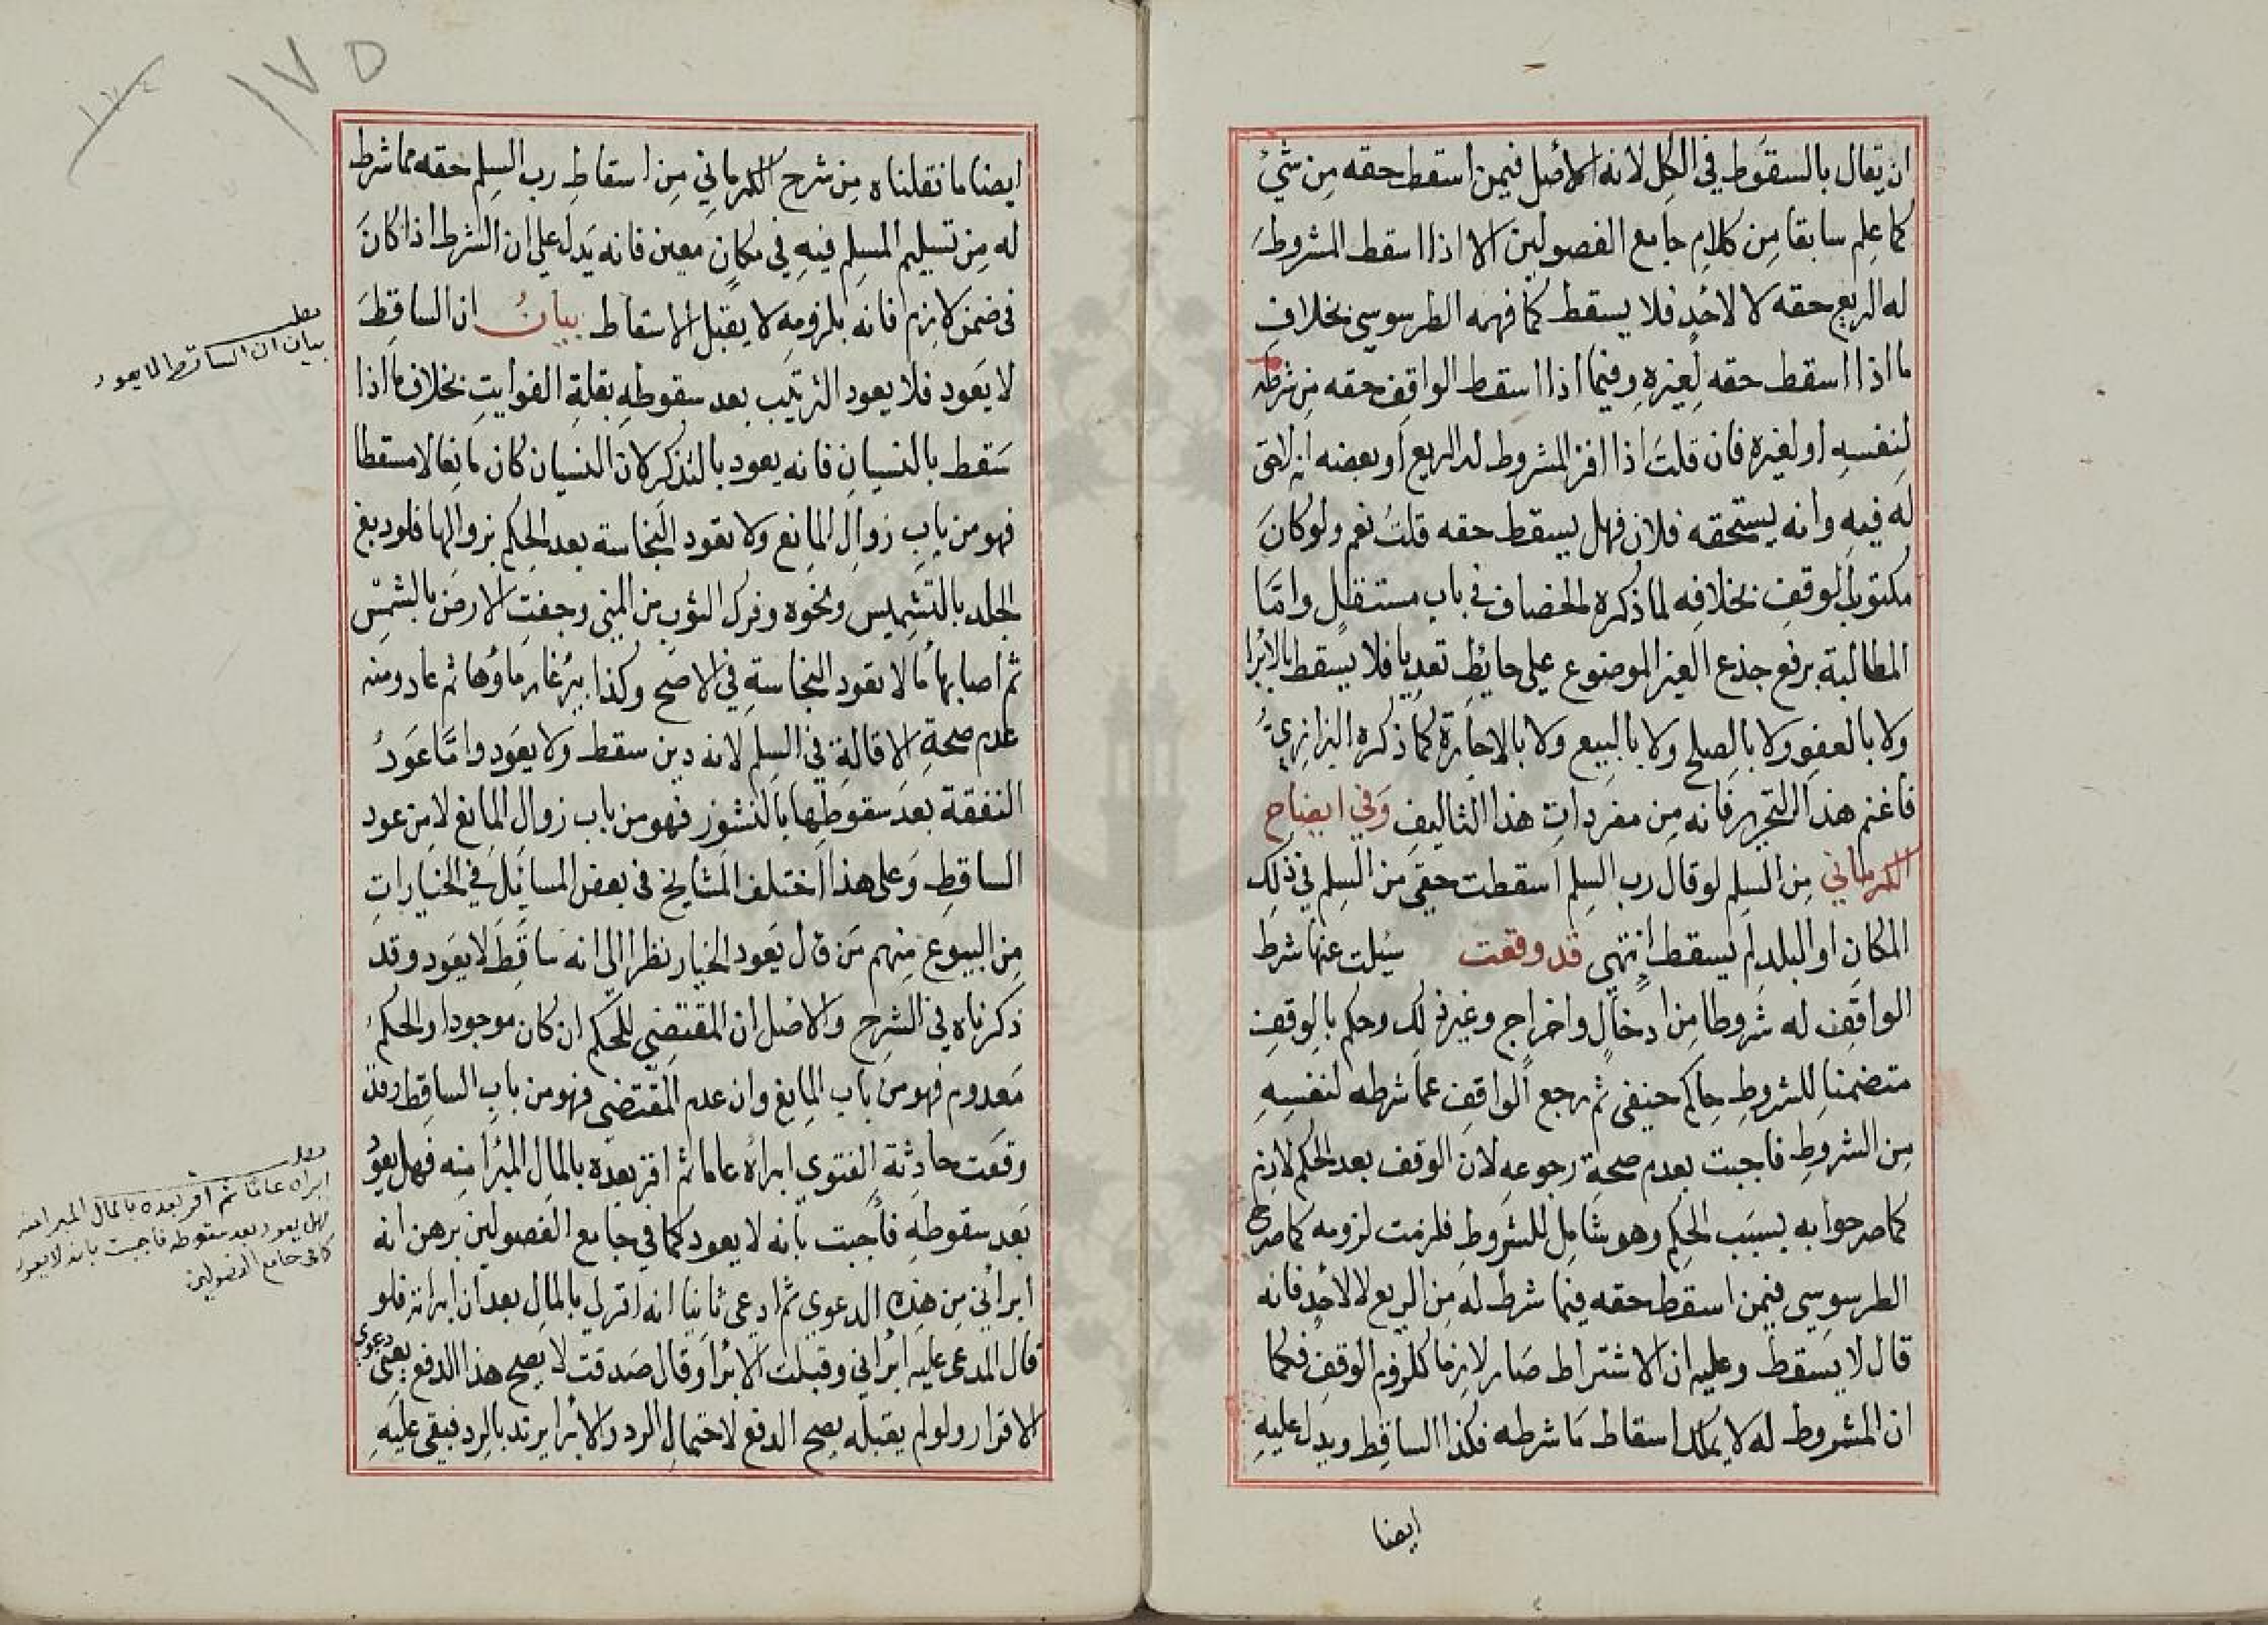 ان يقال بالسقوط في الكل لانه الاصل فيمن اسقط حقه من شئ
كما علم سابقا من كلام جامع الفصولين الا اذا اسقط المشروط
له الريع حقه لا لاحد فلا يسقط كما فهمه الطرسوسي بخلاف
ما اذا اسقط حقه لغيره وفيما اذا اسقط الواقف حقه من شرطه
لنفسه او لغيره فان قلت اذا اقر المشروط له الريع او بعضه انه لاحق
له فيه وانه يستحقه فلان فهل يسقط حقه قلت نعم ولو كان
مكتوب الوقف بخلافه لما ذكره الخصاف في باب مستقل واما
المطالبة برفع جذع الغير الموضوع على حائط تعديا فلا يسقط بالابرا
ولا بالعفو ولا بالصلح ولا بالبيع ولا بالاجارة كما ذكره البزازي
فاغنم هذا التحرير فانه من مفردات هذا التاليف وفي ايضاح
الكرماني من السلم لو قال رب السلم اسقطت حقي من السلم في ذلك
المكان او البلد لم يسقط انتهى قد وقعت سئلت عنها شرط
الواقف له شروطا من ادخال واخراج وغير ذلك وحكم بالوقف
متضمنا للشروط حاكم حنيفي ثم رجع الواقف عما شرطه لنفسه
من الشروط فاجبت بعدم صحة رجوعه لان الوقف بعد الحكم لازم
كما صرحوا به بسبب الحكم وهو شامل للشروط فلزمت لزومه كما صرح
الطرسوسي فيمن اسقط حقه فيما شرط له من الريع لا لاحد فانه
قال لا يسقط وعليه ان الاشتراط صار لازما كلزوم الوقف فكما
ان المشروط له لا يملك اسقاط ما شرطه فكذا الساقط ويدل عليه
ايضا
١٧٥
١٧٤
ايضا ما نقلناه من شرح الكرماني من اسقاط رب السلم حقه مما شرط
له من تسليم المسلم فيه في مكان معين فانه يدل على ان الشرط اذا كان
في ضمن لازم فانه يلزومه لا يقبل الاسقاط بيان ان الساقط
لا يعود فلا يعود الترتيب بعد سقوطه بقلة الفوايت بخلاف ما اذا
سقط بالنسيان فانه يعود بالتذكر لان النسيان كان مانعا لا مسقطا
فهو من باب زوال المانع ولا تعود النجاسة بعد الحكم بزوالها فلو دبغ
الجلد بالتشميس ونحوه وفرك الثوب من المني وجفت الارض بالشمس
ثم اصابها ما لا تعود النجاسة في الاصح وكذا بئر غار ماؤها ثم عاد ومنه
عدم صحة الاقالة في السلم لانه دين سقط ولا يعود واما عود
النفقة بعد سقوطها بالنشوز فهو من باب زوال المانع لا من عود
الساقط وعلى هذا اختلف المشايخ في بعض المسائل في الخيارات
من البيوع منهم من قال يعود الخيار نظرا الى انه ساقط لا يعود وقد
ذكرناه في الشرح والاصل ان المقتضي للحكم ان كان موجودا والحكم
معدوم فهو من باب المانع وان عدم المقتضي فهو من باب الساقط وقد
وقعت حادثة الفتوي ابراه عاما ثم اقر بعده بالمال المبرا منه فهل يعود
بعد سقوطه فاجبت بانه لا يعود كما في جامع الفصولين برهن انه
ابراني من هذه الدعوي ثم ادعى ثانيا انه اقر لي بالمال بعد ان ابراته فلو
قال المدعى عليه ابراني وقبلت الابرا وقال صدقت لا يصح هذا الدفع يعني دعوي
الاقرار ولو لم يقبله يصح الدفع لاحتمال الرد والابرا يرتد بالرد فيبقى عليه
مطلب
بيان ان الساقط لا يعود
مطلب
ابراه عاما ثم اقر بعده بالمال المبرا منه
فهل يعود بعد سقوطه فاجبت بانه لا يعود
كما في جامع الفصولين